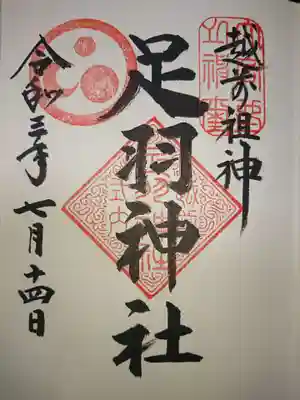 越前祖神
足羽神社
令和三年七月十四日